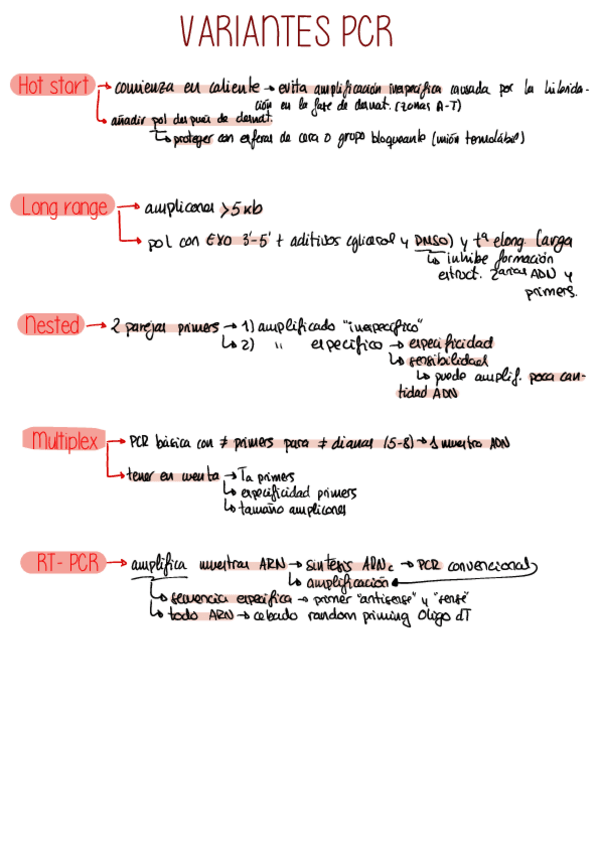 VARIANTES PCR
Hot start → comienza en caliente → evita amplificación inespecífica causada por la hibrida-
ción en la fase de desnat. (zonas A-T)
↳ añadir pol después de desnat.
↳ proteger con esferas de cera o grupo bloqueante (unión termolábil)
Long range → amplicones >5Kb
↳ pol con EXO 3'-5' + aditivos (glicerol y DMSO) y tª elong larga
↳ inhibe formación
estruct. 2arias ADN y
primers.
Nested → 2 parejas primers → 1) amplificado "inespecífico"
↳ 2) " específico → especificidad
↳ sensibilidad
↳ puede amplif. poca can-
tidad ADN
Multiplex → PCR básica con ≠ primers para ≠ dianas (5-8) → 1 muestra ADN
↳ tener en cuenta → Ta primers
↳ especificidad primers
↳ tamaño amplicones
RT-PCR → amplifica muestras ARN → síntesis ADNc → PCR convencional
↳ amplificación
↳ secuencia específica → primer "antisense" y "sense"
↳ todo ARN → cebado random priming Oligo dT